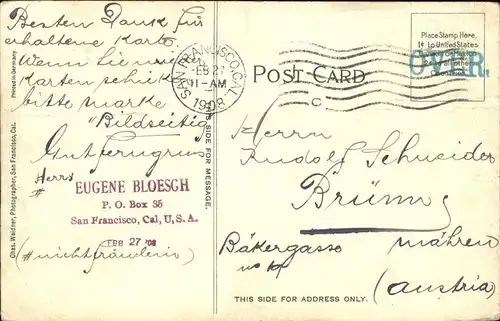 Besten Dank für
erhaltene Karte.
Wenn Sie mir
Karten schicken
bitte Marke
"Bildseitig"
Gutferngruss
Herrn
#
EUGENE BLOESCH
P. O. Box 35
San Francisco, Cal, U, S. A.
FEB 27 '08
(# nicht fräulein)
Chas. Weidner, Photographer, San Francisco, Cal.
Printed in Germany
THIS SIDE FOR MESSAGE.
SAN FRANCISCO, CAL.
FEB 27
11-AM
1908
C
POST CARD
Place Stamp Here.
1¢ to United States
OVER.
Herrn
Rudolf Schneider
Brünn
Bäkergasse
No
mähren
(Austria)
THIS SIDE FOR ADDRESS ONLY.